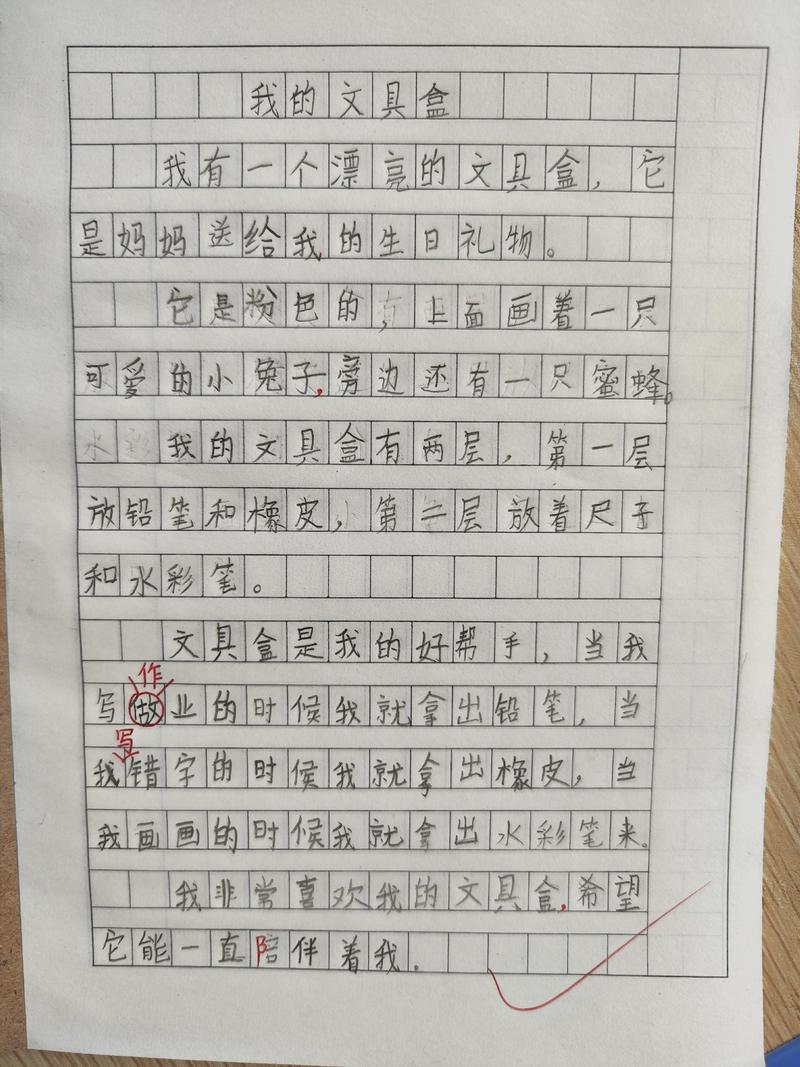 我的文具盒
我有一个漂亮的文具盒，它
是妈妈送给我的生日礼物。
它是粉色的，上面画着一只
可爱的小兔子，旁边还有一只蜜蜂。
我的文具盒有两层，第一层
放铅笔和橡皮，第二层放着尺子
和水彩笔。
文具盒是我的好帮手，当我
作
写做业的时候我就拿出铅笔，当
写
我错字的时候我就拿出橡皮，当
我画画的时候我就拿出水彩笔来。
我非常喜欢我的文具盒，希望
它能一直陪伴着我.